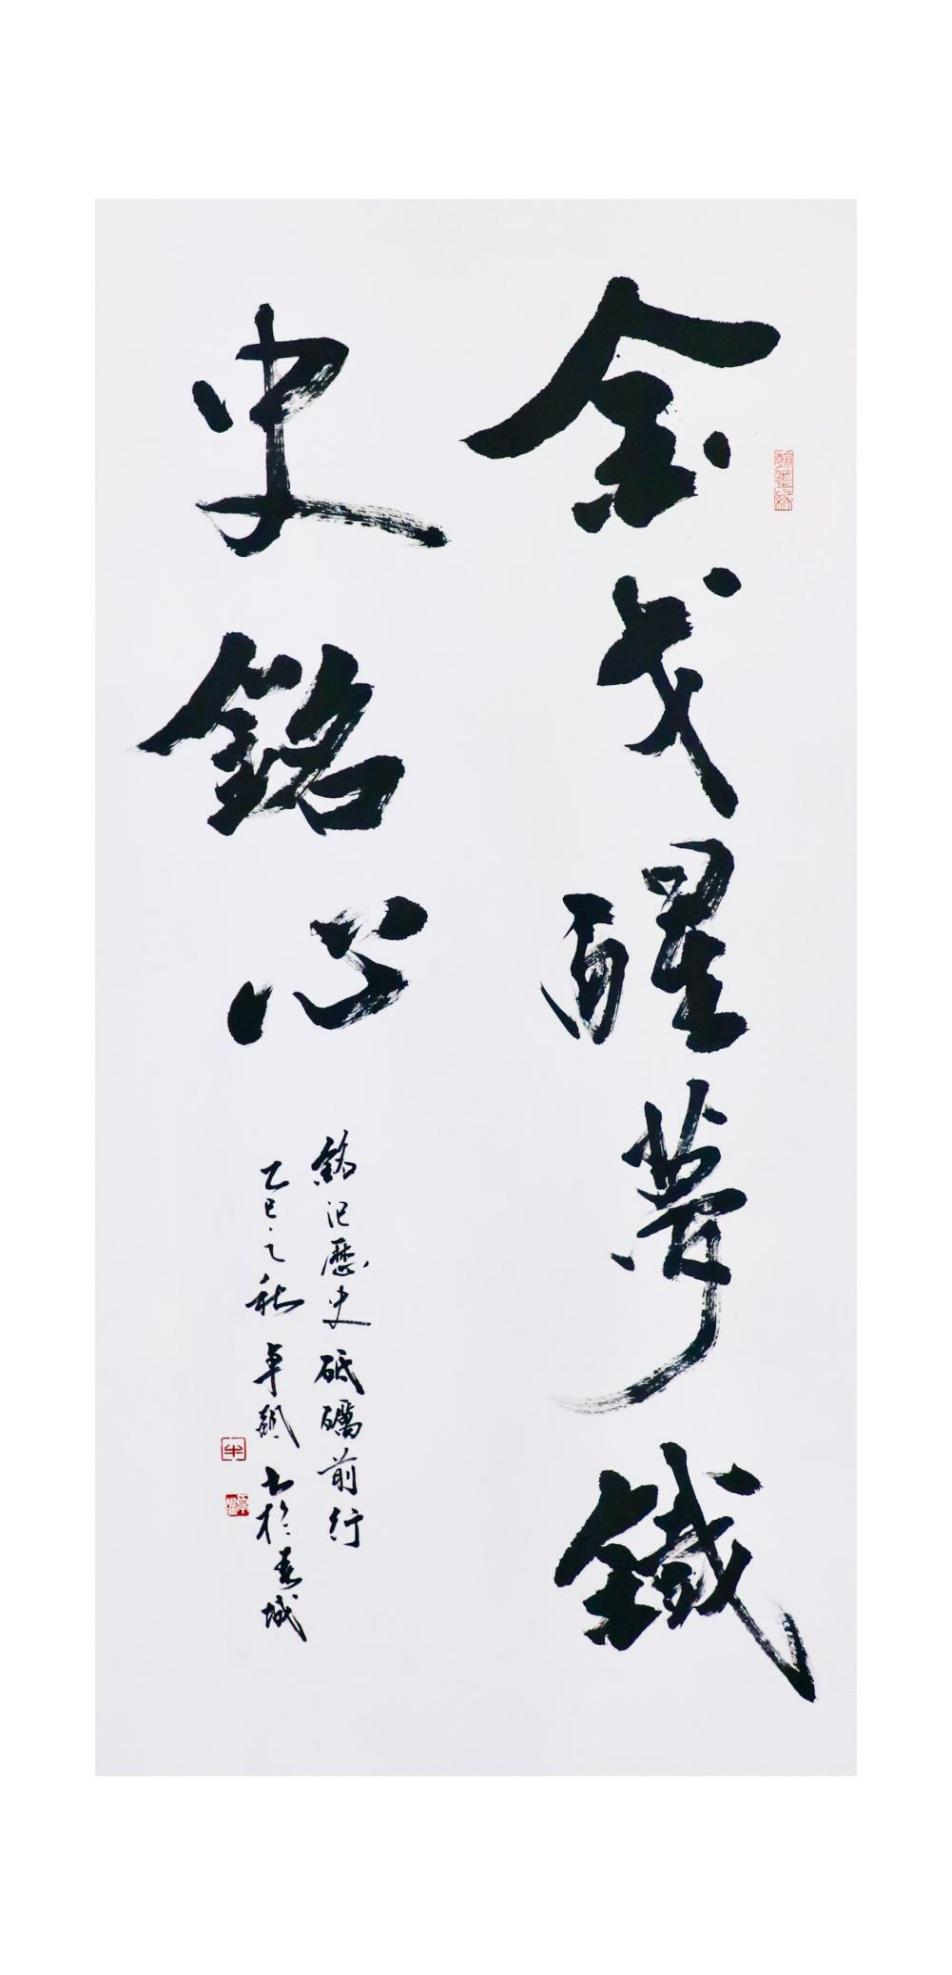 金戈醒夢鐵
史銘心
銘記歷史砥礪前行
乙巳之秋卓顯書於春城